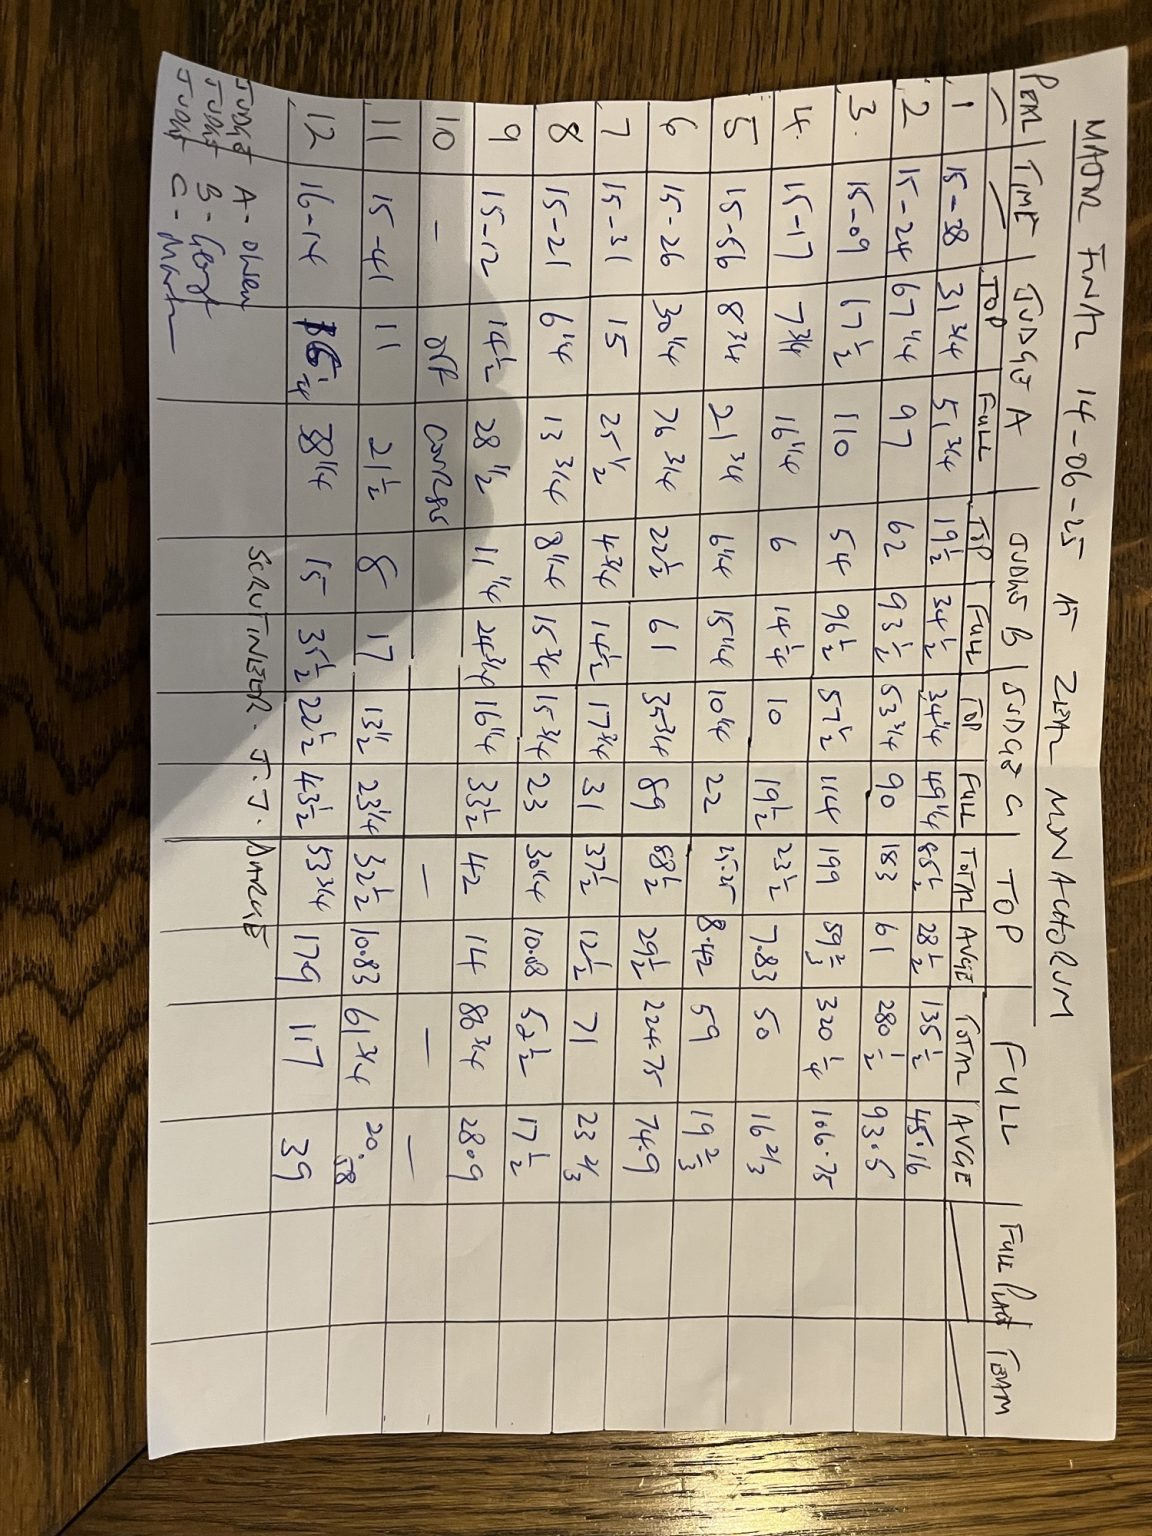 MAJOR FINAL 14-06-25 AT ZEAL MONACHORUM
PEAL | TIME | JUDGE A | JUDGE B | JUDGE C | TOP | FULL | FULL PEAL TEAM
TOP FULL TOP FULL TOP FULL TOTAL AVGE TOTAL AVGE
1 15-38 31 3/4 51 3/4 19 1/2 34 1/2 34 1/4 49 1/4 85 1/2 28 1/2 135 1/2 45.16
2 15-24 67 1/4 97 62 93 1/2 53 3/4 90 183 61 280 1/2 93.5
3. 15-09 67 1/2 110 54 96 1/2 57 1/2 114 199 59 2/3 320 1/4 106.75
4 15-17 7 3/4 16 1/4 6 14 1/4 10 19 1/2 23 1/2 7.83 50 16 2/3
5 15-56 8 3/4 21 3/4 6 1/4 15 1/4 10 1/4 22 25.25 8.42 59 19 2/3
6 15-26 30 1/4 76 3/4 22 1/2 61 35 3/4 89 88 1/2 29 1/2 224.75 74.9
7 15-31 15 25 1/2 4 3/4 14 1/2 17 3/4 31 37 1/2 12 1/2 71 23 2/3
8 15-21 6 1/4 13 3/4 8 1/4 15 3/4 15 3/4 23 30 1/4 10.08 52 1/2 17 1/2
9 15-12 14 1/2 28 1/2 11 1/4 24 3/4 16 1/4 33 1/2 42 14 86 3/4 28.9
10 - OFF COURSE - - -
11 15-41 11 21 1/2 8 17 13 1/2 23 1/4 32 1/2 10.83 61 3/4 20.58
12 16-14 16 1/4 38 1/4 15 35 1/2 22 1/2 43 1/2 53 3/4 179 117 39
JUDGE A - OWEN
JUDGE B -
JUDGE C -
SCRUTINEER. J.J.